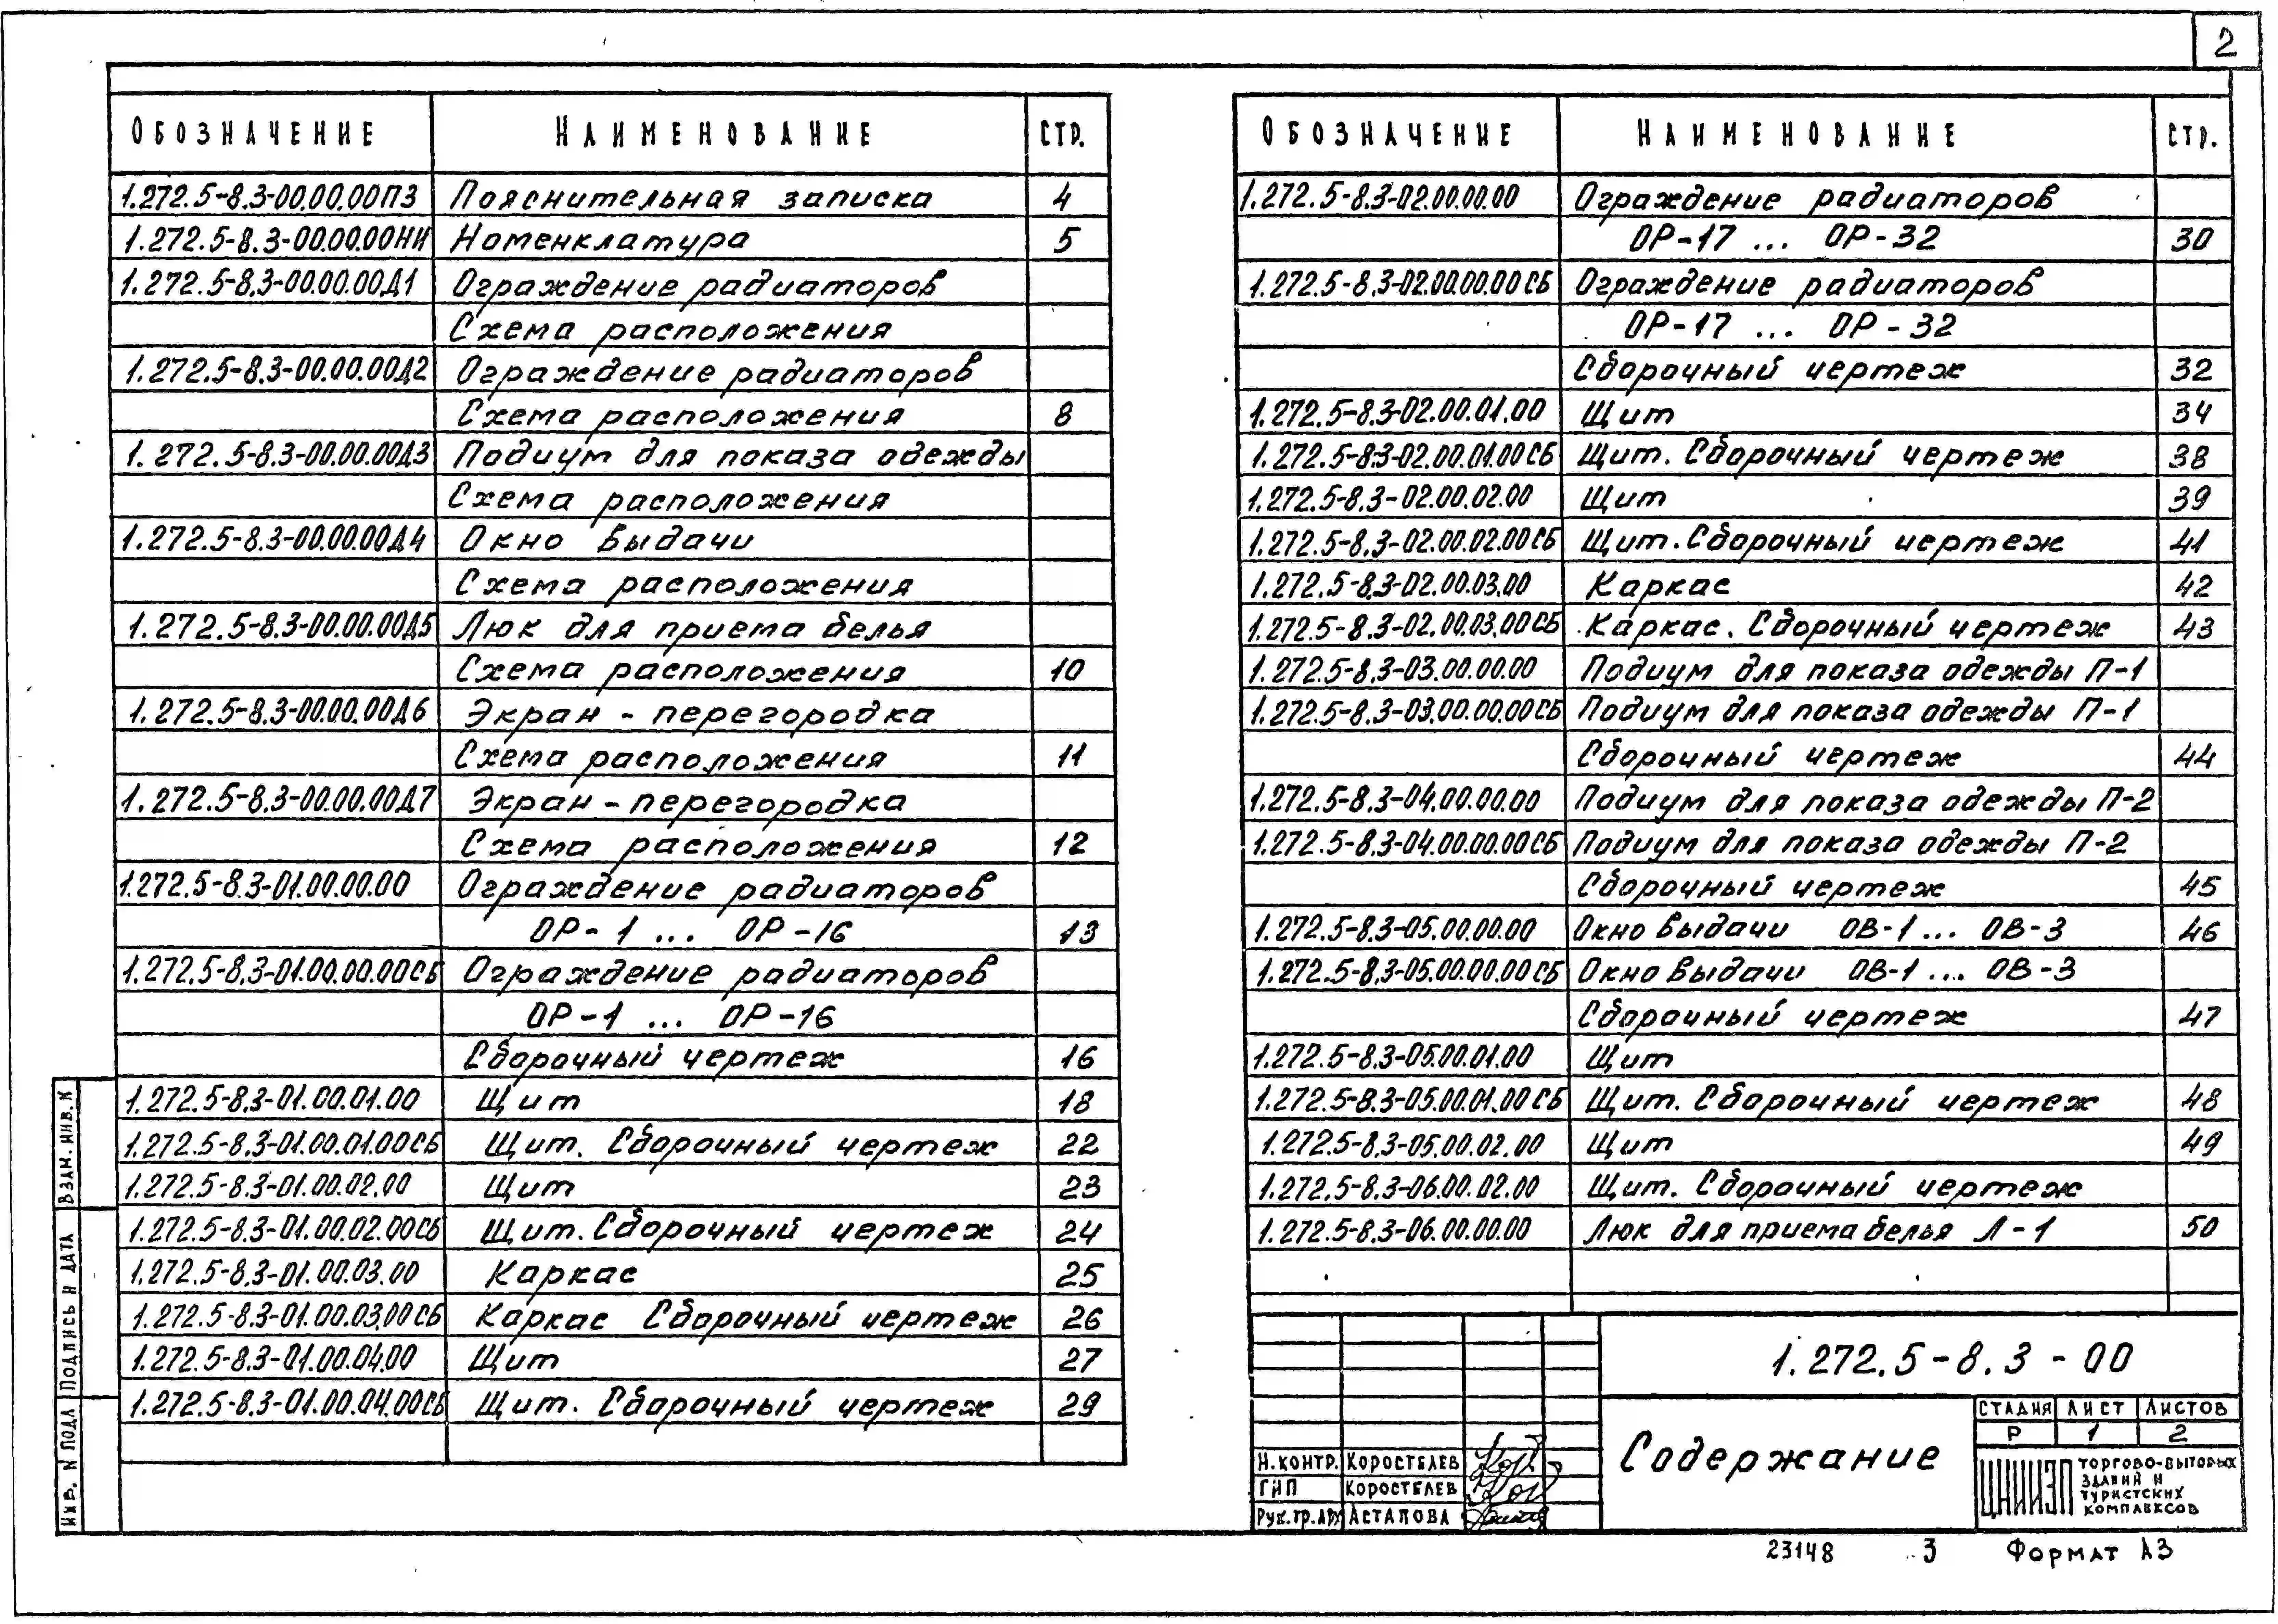 2
Обозначение Наименование стр.
1.272.5-8.3-00.00.00ПЗ Пояснительная записка 4
1.272.5-8.3-00.00.00НИ Номенклатура 5
1.272.5-8.3-00.00.00Д1 Ограждение радиаторов
Схема расположения
1.272.5-8.3-00.00.00Д2 Ограждение радиаторов
Схема расположения 8
1.272.5-8.3-00.00.00Д3 Подиум для показа одежды
Схема расположения
1.272.5-8.3-00.00.00Д4 Окно выдачи
Схема расположения
1.272.5-8.3-00.00.00Д5 Люк для приема белья
Схема расположения 10
1.272.5-8.3-00.00.00Д6 Экран-перегородка
Схема расположения 11
1.272.5-8.3-00.00.00Д7 Экран-перегородка
Схема расположения 12
1.272.5-8.3-01.00.00.00 Ограждение радиаторов
ОР-1 ... ОР-16 13
1.272.5-8.3-01.00.00.00СБ Ограждение радиаторов
ОР-1 ... ОР-16
Сборочный чертеж 16
1.272.5-8.3-01.00.01.00 Щит 18
1.272.5-8.3-01.00.01.00СБ Щит. Сборочный чертеж 22
1.272.5-8.3-01.00.02.00 Щит 23
1.272.5-8.3-01.00.02.00СБ Щит. Сборочный чертеж 24
1.272.5-8.3-01.00.03.00 Каркас 25
1.272.5-8.3-01.00.03.00СБ Каркас Сборочный чертеж 26
1.272.5-8.3-01.00.04.00 Щит 27
1.272.5-8.3-01.00.04.00СБ Щит. Сборочный чертеж 29
Обозначение Наименование стр.
1.272.5-8.3-02.00.00.00 Ограждение радиаторов
ОР-17 ... ОР-32 30
1.272.5-8.3-02.00.00.00СБ Ограждение радиаторов
ОР-17 ... ОР-32
Сборочный чертеж 32
1.272.5-8.3-02.00.01.00 Щит 34
1.272.5-8.3-02.00.01.00СБ Щит. Сборочный чертеж 38
1.272.5-8.3-02.00.02.00 Щит 39
1.272.5-8.3-02.00.02.00СБ Щит. Сборочный чертеж 41
1.272.5-8.3-02.00.03.00 Каркас 42
1.272.5-8.3-02.00.03.00СБ Каркас. Сборочный чертеж 43
1.272.5-8.3-03.00.00.00 Подиум для показа одежды П-1
1.272.5-8.3-03.00.00.00СБ Подиум для показа одежды П-1
Сборочный чертеж 44
1.272.5-8.3-04.00.00.00 Подиум для показа одежды П-2
1.272.5-8.3-04.00.00.00СБ Подиум для показа одежды П-2
Сборочный чертеж 45
1.272.5-8.3-05.00.00.00 Окно выдачи ОВ-1 ... ОВ-3 46
1.272.5-8.3-05.00.00.00СБ Окно выдачи ОВ-1 ... ОВ-3
Сборочный чертеж 47
1.272.5-8.3-05.00.01.00 Щит
1.272.5-8.3-05.00.01.00СБ Щит. Сборочный чертеж 48
1.272.5-8.3-05.00.02.00 Щит 49
1.272.5-8.3-06.00.02.00 Щит. Сборочный чертеж
1.272.5-8.3-06.00.00.00 Люк для приема белья Л-1 50
1.272.5-8.3-00
Содержание
Стадия Лист Листов
Р 1 2
Н.контр. Коростелев
ГИП Коростелев
Рук.гр.арх Астапова
ЦНИИЭП торгово-бытовых
зданий и
туристских
комплексов
23148 3 Формат А3
Инв. N подл Подпись и дата Взам. инв. N